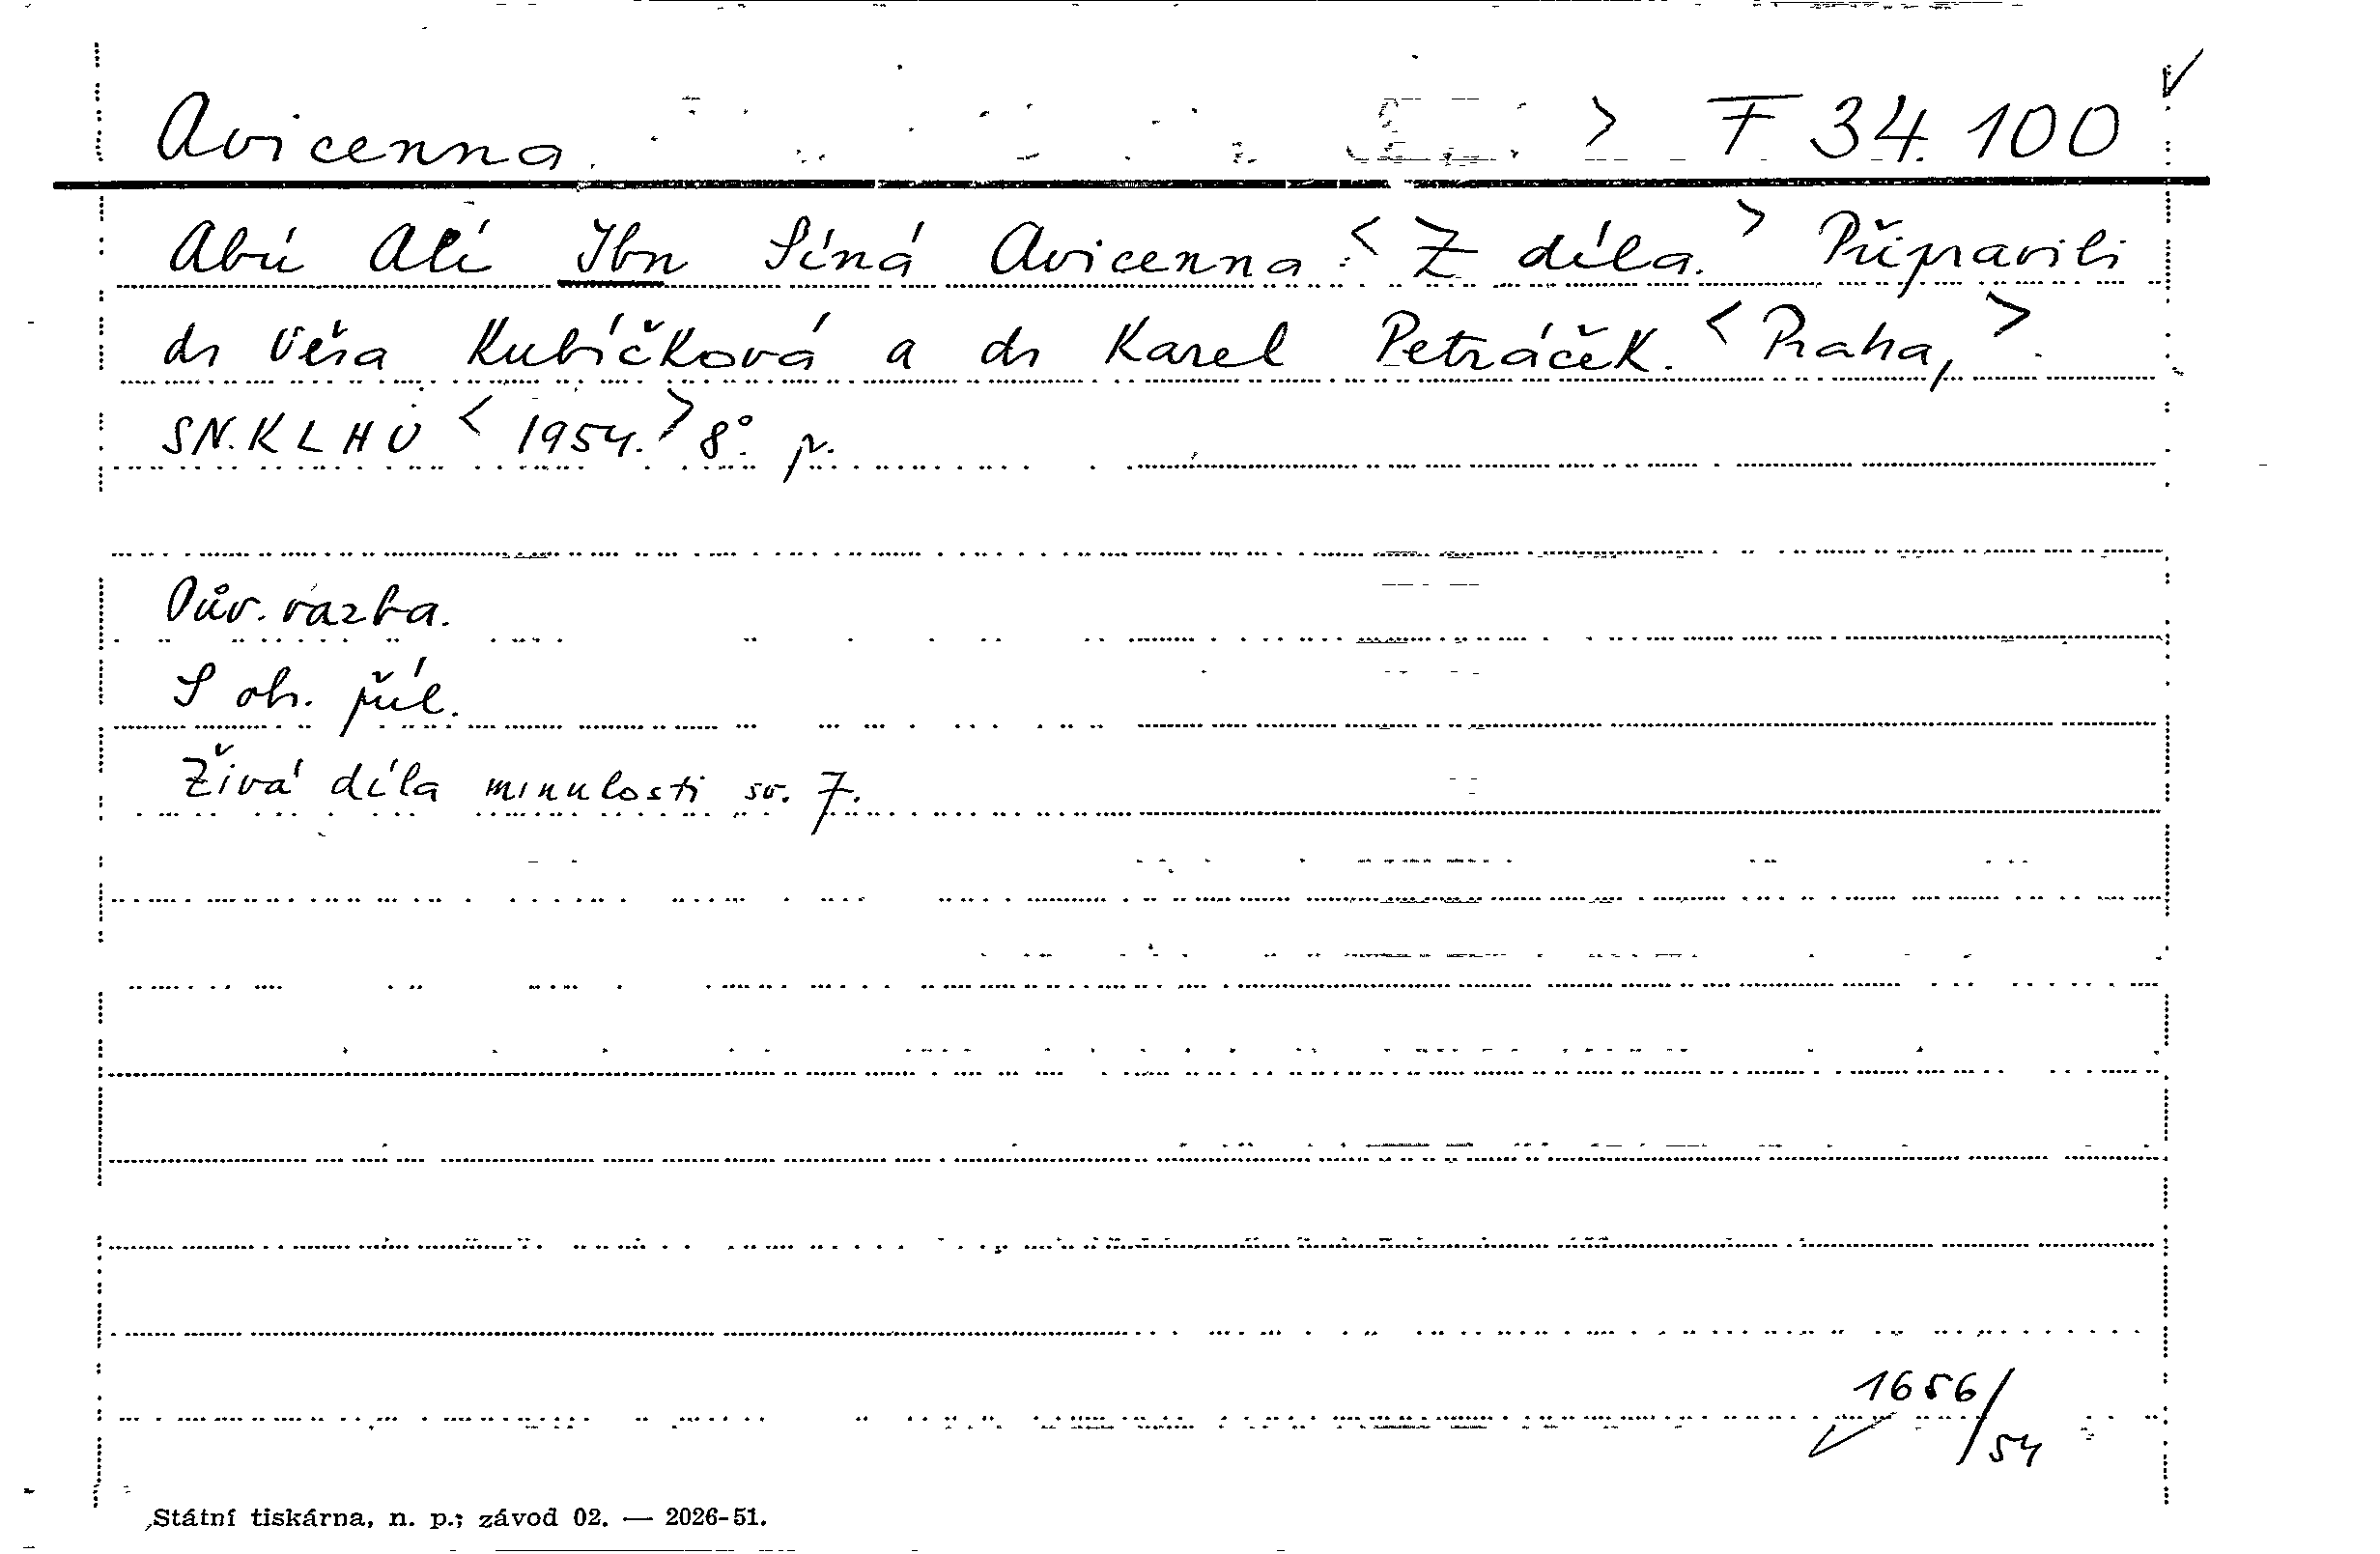 Avicenna. > F 34.100
Abú Alí Ibn Síná Avicenna: < Z díla. > Připravili
dr Věra Kubíčková a dr Karel Petráček. < Praha, >
SN.KLHU < 1954. > 8° p.
Pův. vazba.
S obr. příl.
Živá díla minulosti sv. 7.
1656/54
Státní tiskárna, n. p.; závod 02. — 2026-51.